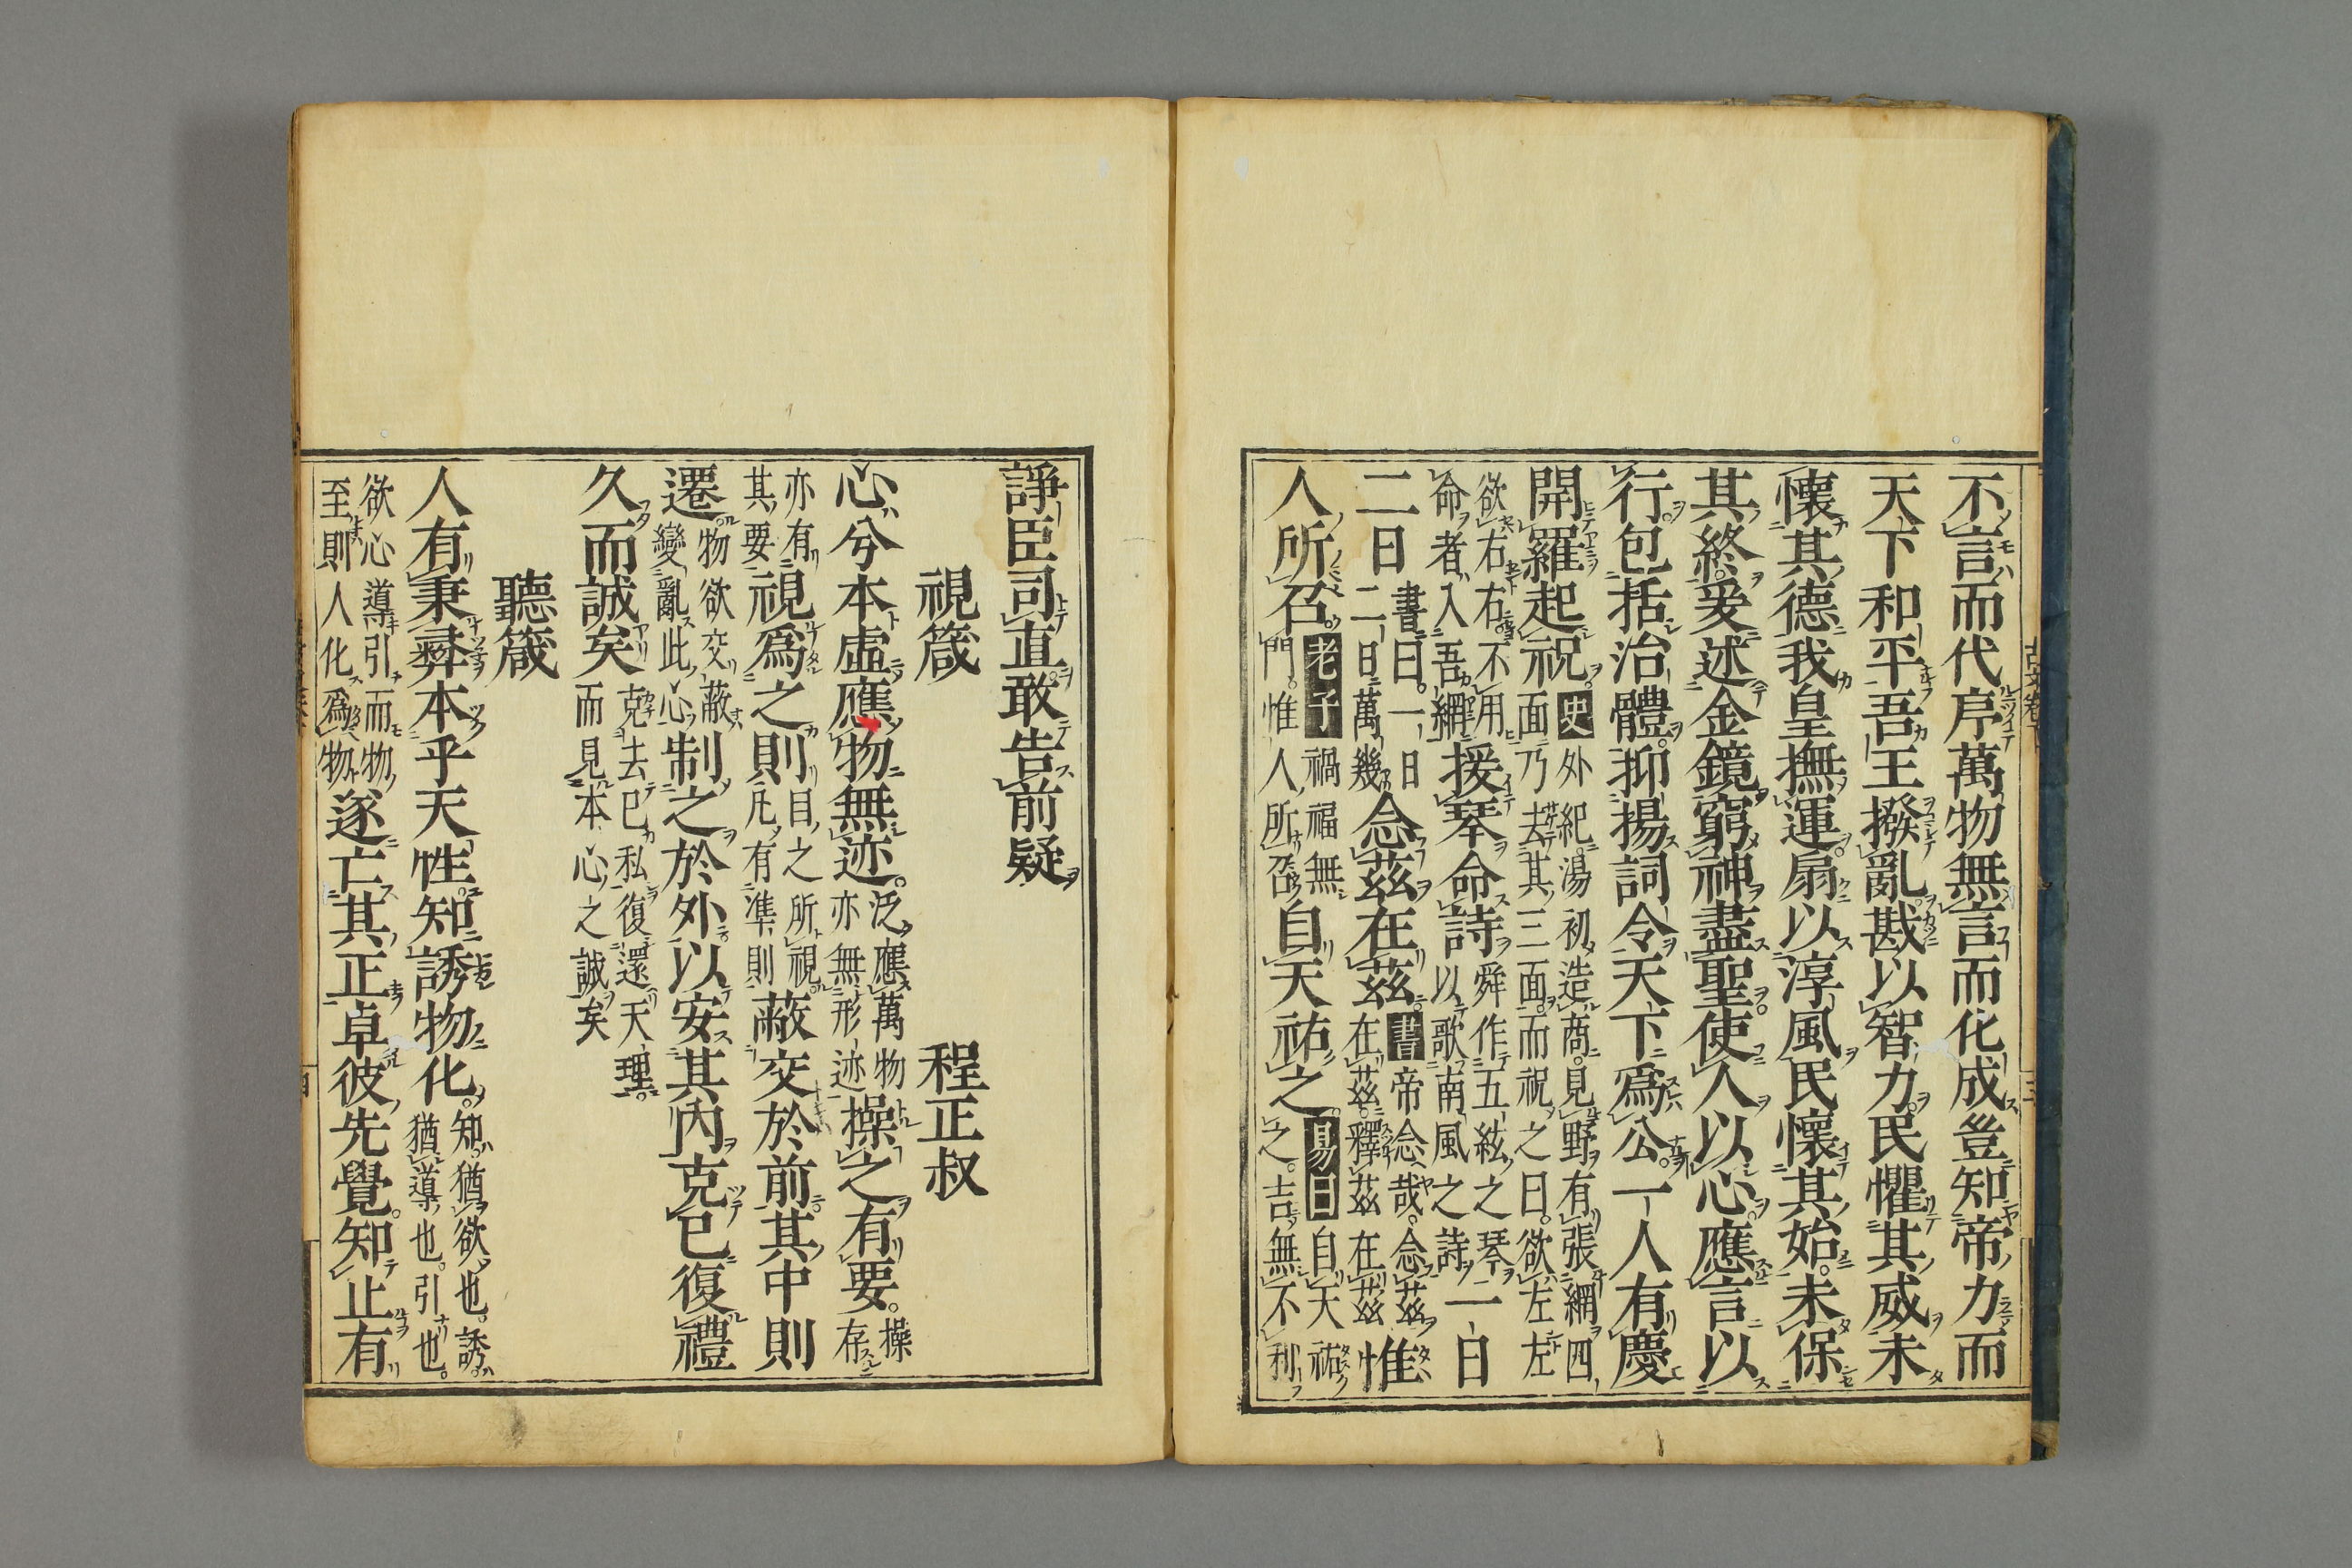 不言而代序萬物無言而化成豈知帝力而
天下和平吾王撥亂戡以智力民懼其威未
懷其德我皇撫運扇以淳風民懷其始未保
其終爰述金鏡窮神盡聖使人以心應言以
行包括治體抑揚詞令天下爲公一人有慶
開羅起祝史外紀湯初造商見野有張網四面乃去其三面而祝之曰欲左左
欲右右不用命者入吾網援琴命詩舜作五絃之琴以歌南風之詩一日
二日書曰一日二日萬幾念茲在茲書帝念哉念茲在茲釋茲在茲惟
人所召老子禍福無門惟人所召自天祐之易曰自天祐之吉無不利
諍臣司直敢告前疑
視箴 程正叔
心兮本虛應物無迹泛應萬物亦無形迹操之有要操存
亦有其要視爲之則目之所視凡有準則蔽交於前其中則
遷物欲交蔽變亂此心制之於外以安其內克已復禮
久而誠矣克去已私復還天理而見本心之誠矣
聽箴
人有秉彝本乎天性知誘物化知猶欲也誘猶導也引也
欲心導引而物至則人化爲物遂亡其正卓彼先覺知止有